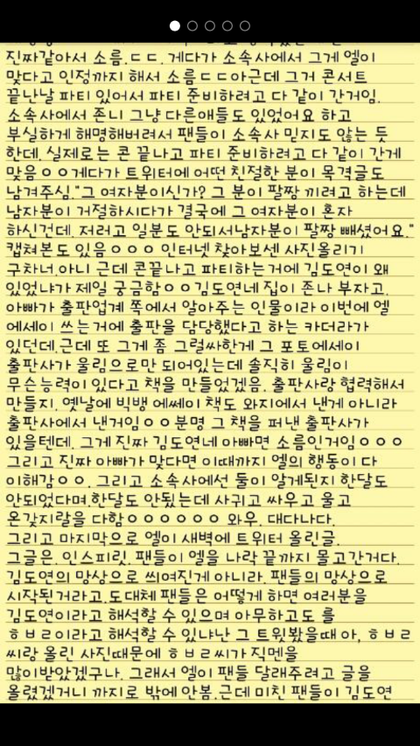 진짜같아서 소름.ㄷㄷ. 게다가 소속사에서 그게 엘이
맞다고 인정까지 해서 소름ㄷㄷ아근데 그거 콘서트
끝난날 파티 있어서 파티 준비하려고 다 같이 간거임.
소속사에서 존니 그냥 다른애들도 있었어요 하고
부실하게 해명해버려서 팬들이 소속사 믿지도 않는 듯
한데. 실제로는 콘 끝나고 파티 준비하려고 다 같이 간게
맞음ㅇㅇ게다가 트위터에 어떤 친절한 분이 목격글도
남겨주심."그 여자분이신가? 그 분이 팔짱 끼려고 하는데
남자분이 거절하시다가 결국에 그 여자분이 혼자
하신건데. 저러고 일분도 안되서남자분이 팔짱 빼셨어요."
캡쳐본도 있음ㅇㅇㅇ 인터넷 찾아보센 사진올리기
구차너.아니 근데 콘끝나고 파티하는거에 김도연이 왜
있었냐가 제일 궁금함ㅇㅇ김도연네 집이 존나 부자고.
아빠가 출판업계 쪽에서 알아주는 인물이라 이번에 엘
에세이 쓰는거에 출판을 담당했다고 하는 카더라가
있던데.근데 또 그게 좀 그럴싸한게 그 포토에세이
출판사가 울림으로만 되어있는데 솔직히 울림이
무슨능력이 있다고 책을 만들었겠음. 출판사랑 협력해서
만들지. 옛날에 빅뱅 에쎄이 책도 와지에서 낸게 아니라
출판사에서 낸거임ㅇㅇ분명 그 책을 펴낸 출판사가
있을텐데. 그게 진짜 김도연네 아빠면 소름인거임ㅇㅇㅇ
그리고 진짜 아빠가 맞다면 이때까지 엘의 행동이 다
이해감ㅇㅇ. 그리고 소속사에선 둘이 알게된지 한달도
안되었다며.한달도 안됬는데 사귀고 싸우고 울고
온갖지랄을 다함ㅇㅇㅇㅇㅇㅇ 와우. 대다나다.
그리고 마지막으로 엘이 새벽에 트위터 올린글.
그글은. 인스피릿. 팬들이 엘을 나락 끝까지 몰고간거다.
김도연의 망상으로 씌여진게 아니라. 팬들의 망상으로
시작된거라고.도대체 팬들은 어떻게 하면 여러분을
김도연이라고 해석할 수 있으며 아무하고도 를
ㅎㅂㄹ이라고 해석할 수 있냐난 그 트윗봤을때 아, ㅎㅂㄹ
씨랑 올린 사진때문에 ㅎㅂㄹ씨가 직멘을
많이받았겠구나. 그래서 엘이 팬들 달래주려고 글을
올렸겠거니 까지로 밖에 안봄.근데 미친 팬들이 김도연